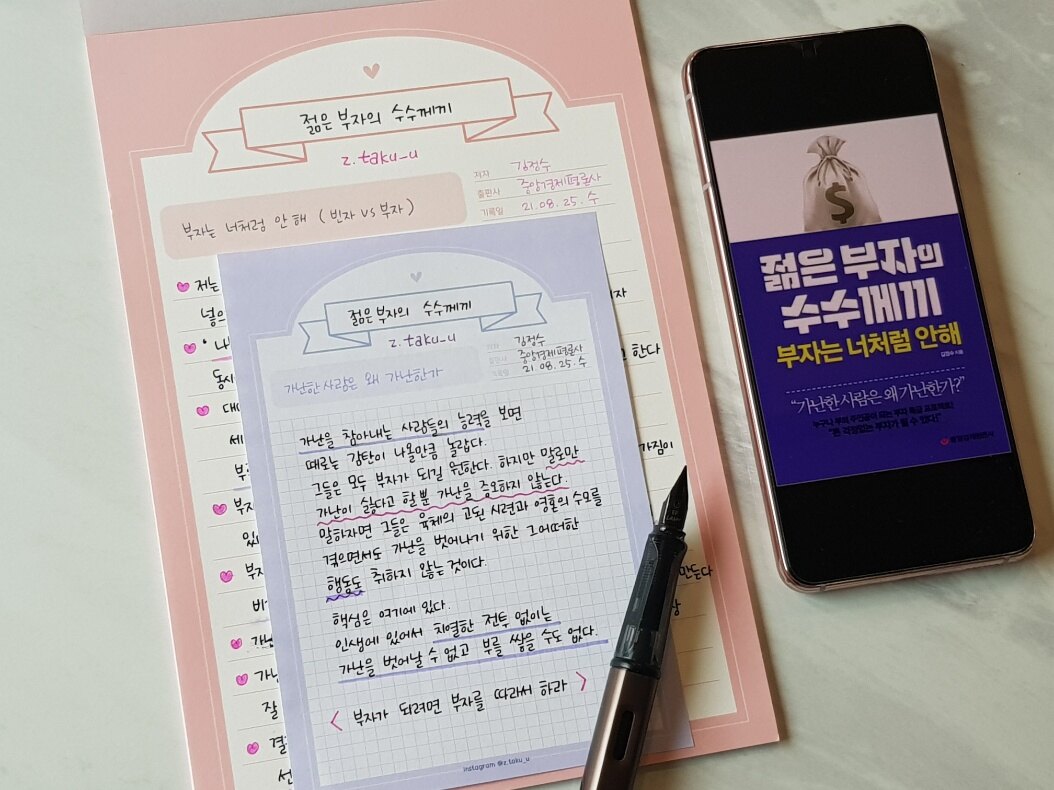 젊은 부자의 수수께끼
z.taku_u
저자 김정수
출판사 중앙경제평론사
기록일 21.08.25.수
부자는 너처럼 안 해 ( 빈자 VS 부자 )
저는
넣으
' 나
동시
고 한다
대
세
부
가짐이
부자
있
부자
만든다
비
가난
가난
잘
결
선
젊은 부자의 수수께끼
z.taku_u
저자 김정수
출판사 중앙경제평론사
기록일 21.08.25.수
가난한 사람은 왜 가난한가
가난을 참아내는 사람들의 능력을 보면
때로는 감탄이 나올만큼 놀랍다.
그들은 모두 부자가 되길 원한다. 하지만 말로만
가난이 싫다고 할 뿐 가난을 증오하지 않는다.
말하자면 그들은 육체의 고된 시련과 영혼의 수모를
겪으면서도 가난을 벗어나기 위한 그어떠한
행동도 취하지 않는 것이다.
핵심은 여기에 있다.
인생에 있어서 치열한 전투 없이는
가난을 벗어날 수 없고 부를 쌓을 수도 없다.
< 부자가 되려면 부자를 따라서 하라 >
instagram @z.taku_u
$
젊은 부자의
수수께끼
부자는 너처럼 안해
김정수 지음
"가난한 사람은 왜 가난한가?"
누구나 부의 주인공이 되는 부자 특급 프로젝트!
"돈 걱정없는 부자가 될 수 있다!"
중앙경제평론사